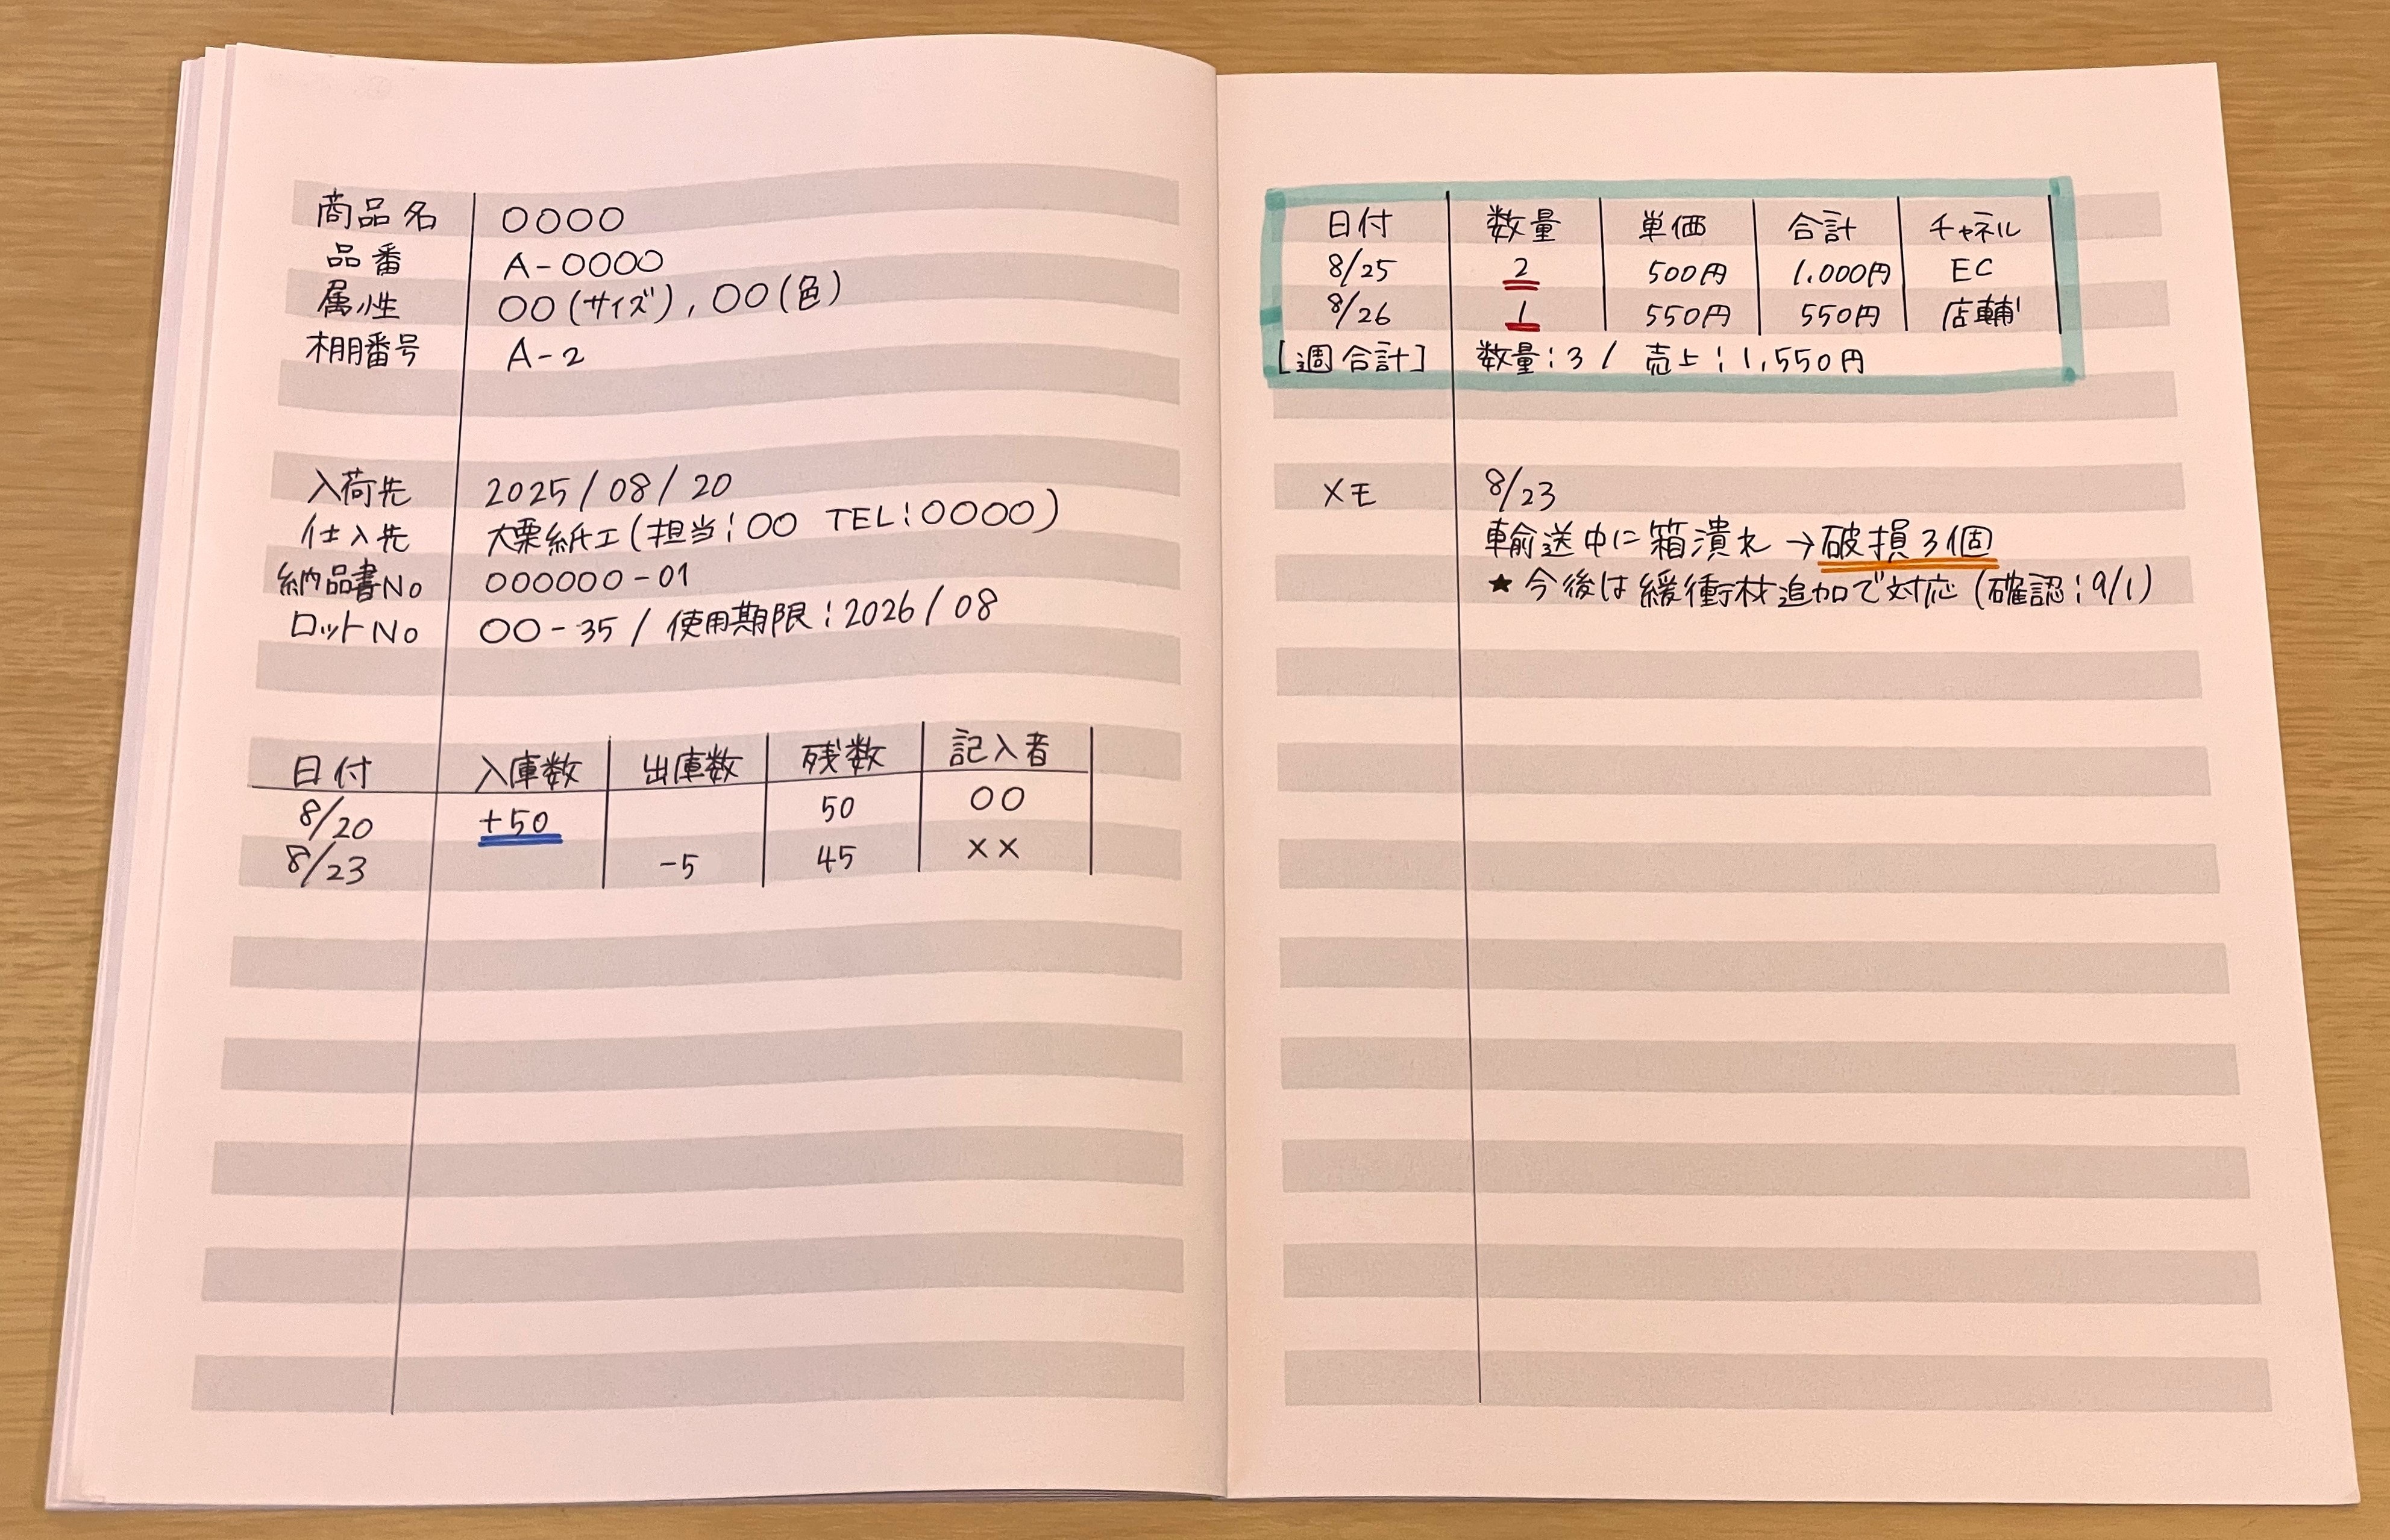 商品名 ○○○○
品番 A-○○○○
属性 ○○(サイズ), ○○(色)
棚番号 A-2
入荷先 2025/08/20
仕入先 大栗紙工(担当:○○ TEL:○○○○)
納品書No ○○○○○○-01
ロットNo ○○-35 / 使用期限:2026/08
日付 入庫数 出庫数 残数 記入者
8/20 +50 50 ○○
8/23 -5 45 ××
日付 数量 単価 合計 チャネル
8/25 2 500円 1.000円 EC
8/26 1 550円 550円 店輔
[週合計] 数量:3 / 売上:1,550円
メモ 8/23
輸送中に箱潰れ→破損3個
★今後は緩衝材追加で対応(確認:9/1)